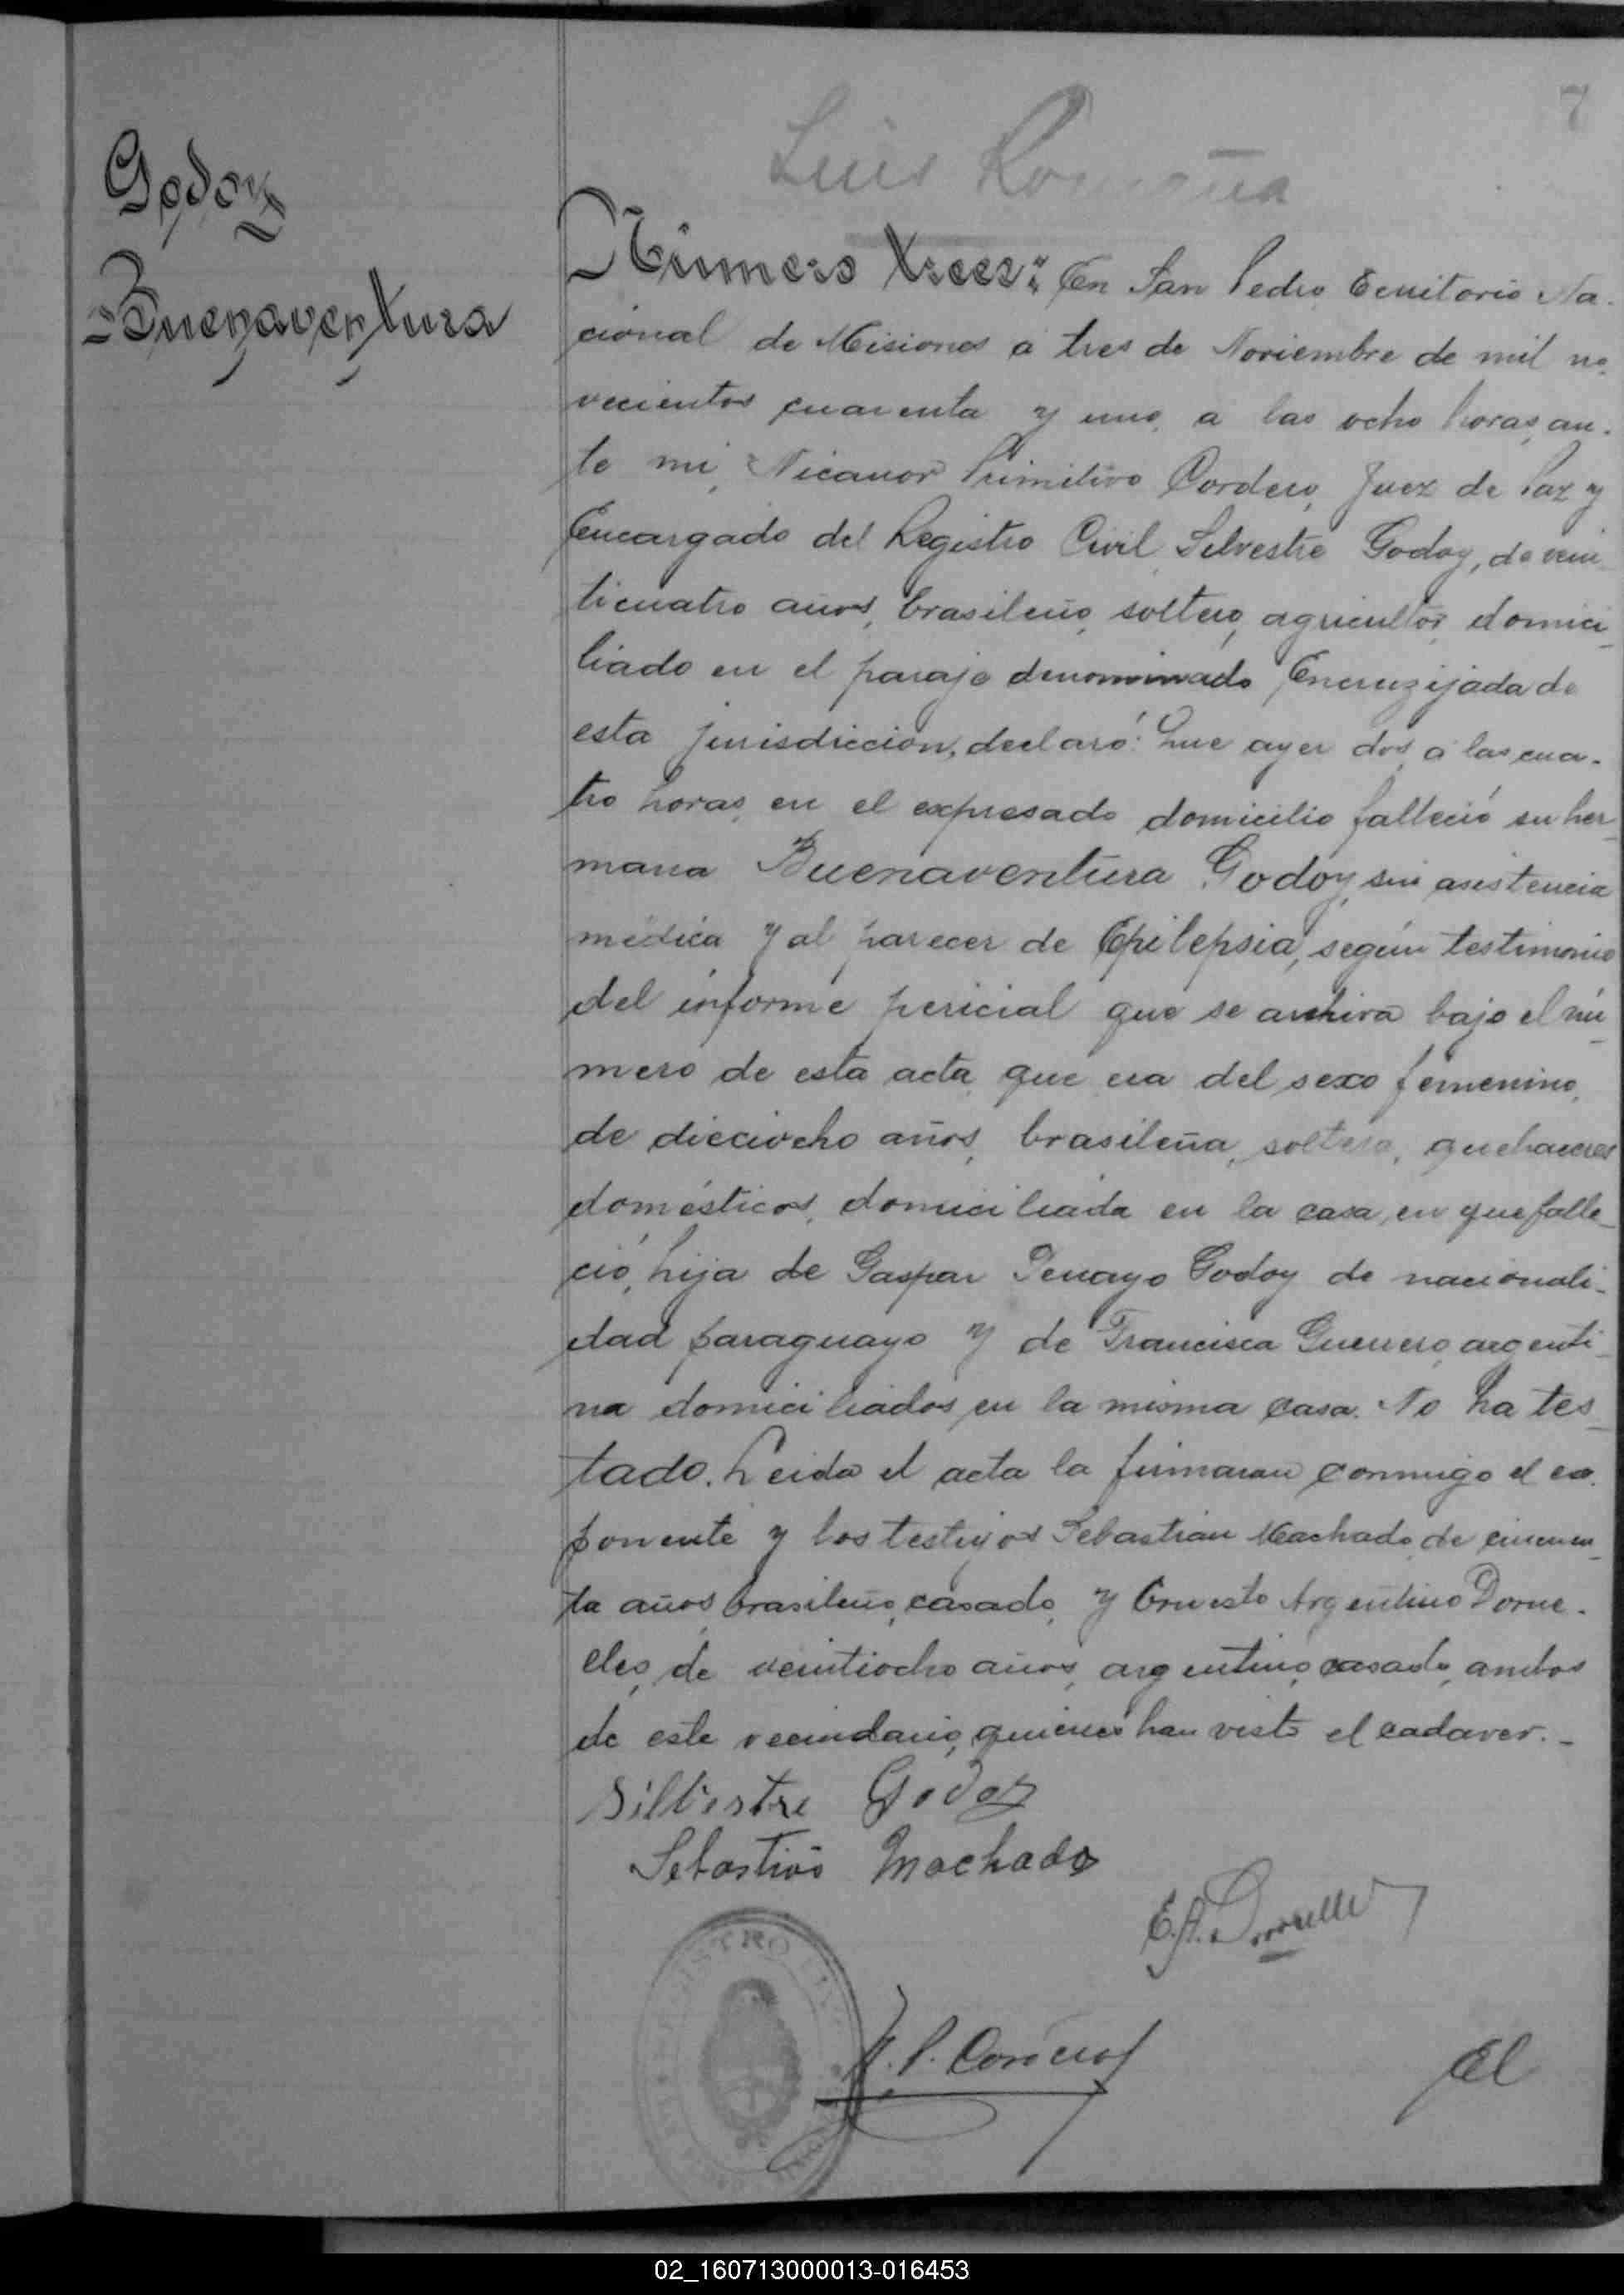 7
Luis Romaña
Godoy
Buenaventura
Número trece: En San Pedro, Territorio Na-
cional de Misiones a tres de Noviembre de mil no-
vecientos cuarenta y uno, a las ocho horas, an-
te mi, Nicanor Primitivo Cordero, Juez de Paz y
Encargado del Registro Civil, Silvestre Godoy, de vein-
ticuatro años, brasileño, soltero, agricultor, domici-
liado en el paraje denominado Encruzijada de
esta jurisdiccion, declaró: Que ayer dos, a las cua-
tro horas, en el expresado domicilio falleció su her-
mana Buenaventura Godoy, sin asistencia
médica y al parecer de Epilepsia, según testimonio
del informe pericial que se archiva bajo el nú-
mero de esta acta, que era del sexo femenino,
de dieciocho años, brasileña, soltera, quehaceres
domésticos, domiciliada en la casa, en que falle-
ció, hija de Gaspar Godoy de nacionali-
dad paraguayo y de Francisca Guerrero, argenti-
na domiciliados en la misma casa. No ha tes-
tado. Leida el acta la firmaran conmigo el ex-
ponente y los testigos Sebastian Machado, de cincuen-
ta años, brasileño, casado, y Ernesto Argentino Dorne-
eles, de veintiocho años, argentino, casado, ambos
de este vecindario, quienes han visto el cadaver.-
Silvestre Godoy
Sebastião Machado
E.A. Dornelle
N.P. Cordero
El
02_160713000013-016453